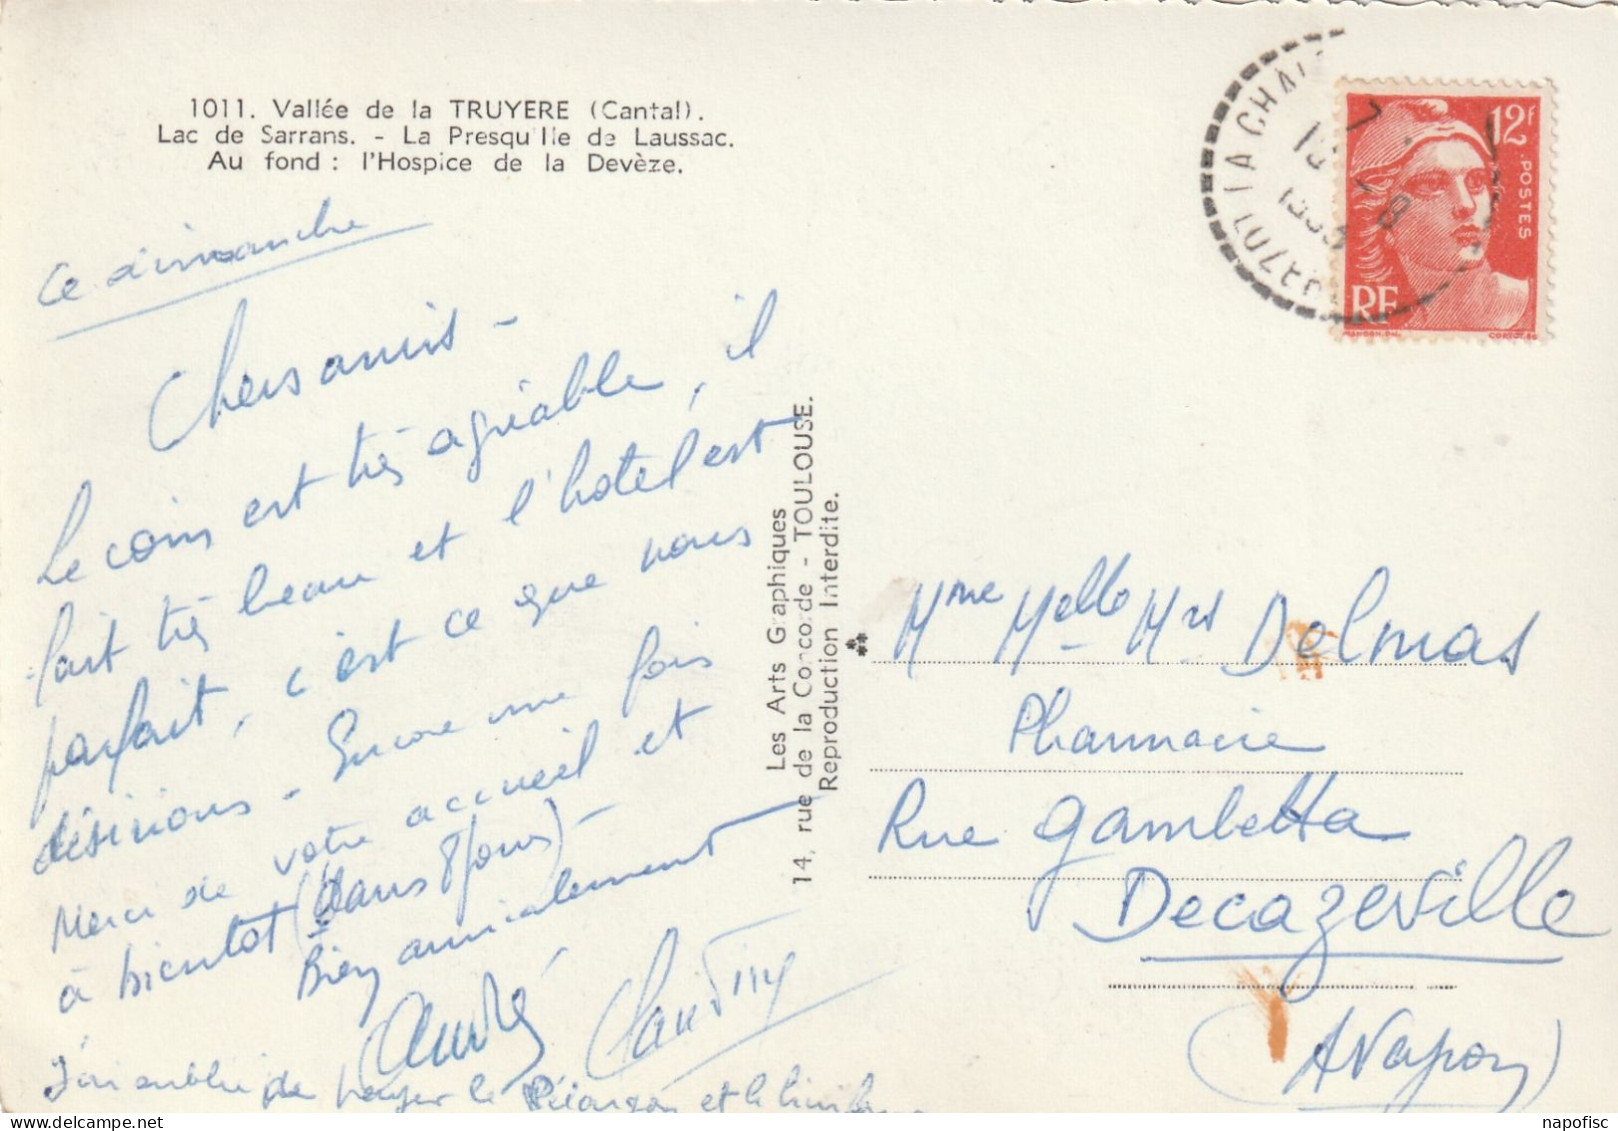 1011. Vallée de la TRUYERE (Cantal).
Lac de Sarrans. - La Presqu'Ile de Laussac.
Au fond : l'Hospice de la Devèze.
Ce dimanche
Chers amis -
Le coin est très agréable, il
fait très beau et l'hotel est
parfait, c'est ce que nous
désirions - Encore une fois
Merci de votre accueil et
à bientot (dans 8 jours) -
Bien amicalement
André Claudiny
J'ai oublié de payer le et le
Les Arts Graphiques
14, rue de la Concorde - TOULOUSE.
Reproduction Interdite.
12f
POSTES
RF
Mme Melle Mrs Delmas
Pharmacie
Rue Gambetta
Decazeville
(Aveyron)
napofisc